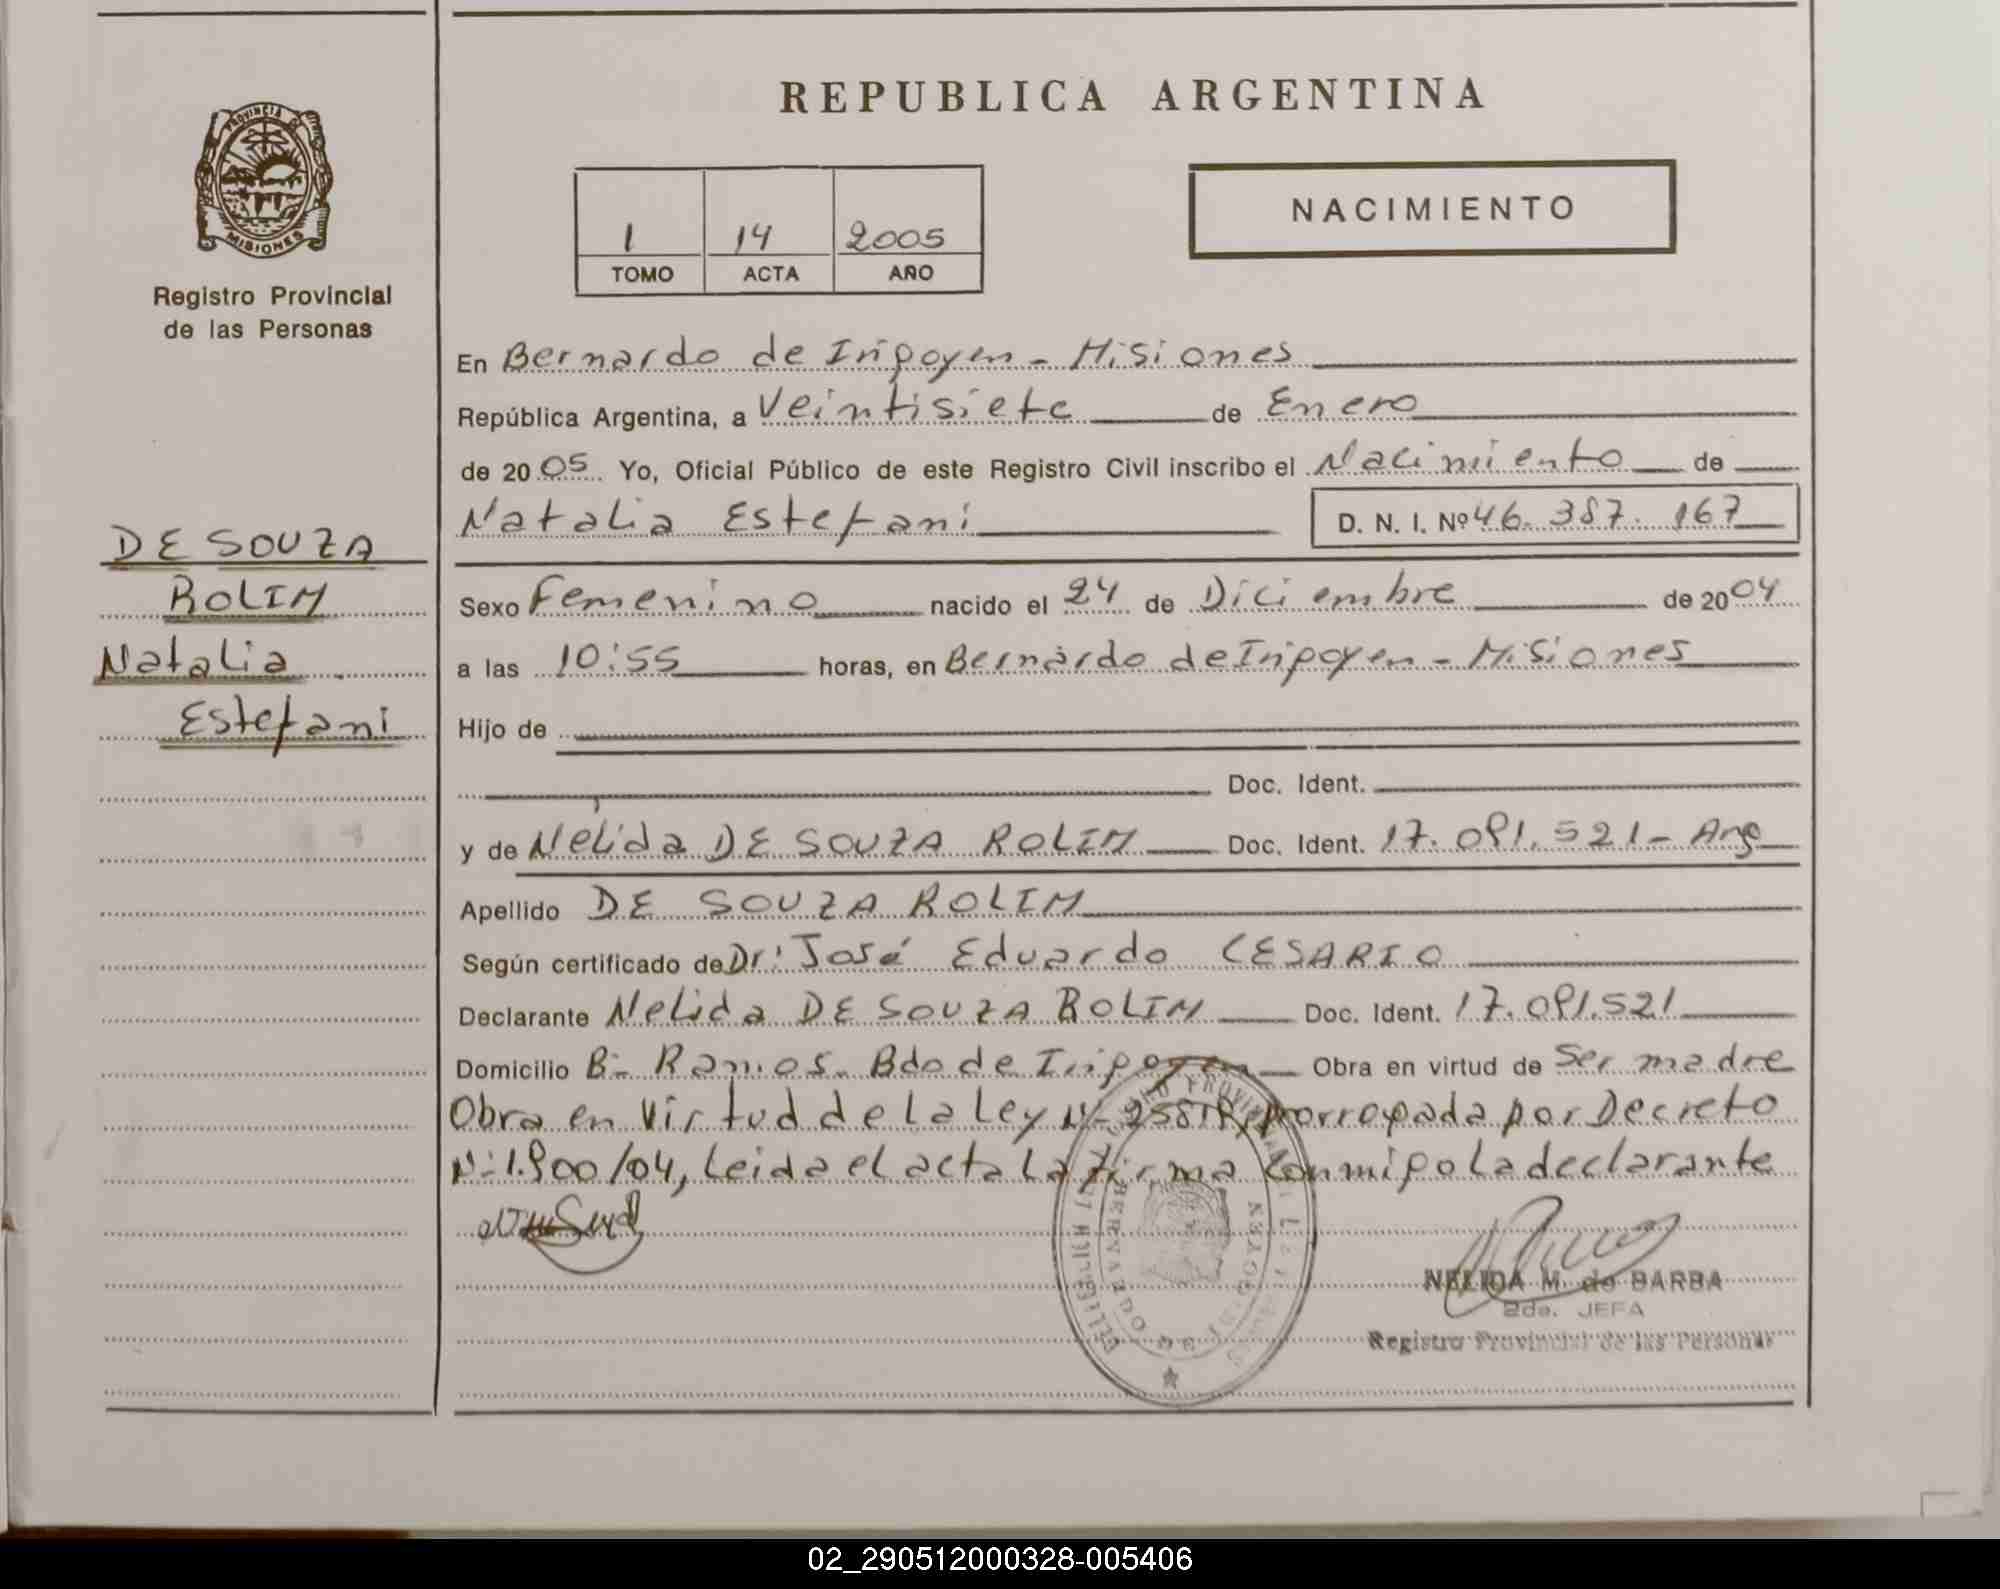 REPUBLICA ARGENTINA
PROVINCIA DE
MISIONES
Registro Provincial
de las Personas
1 14 2005
TOMO ACTA AÑO
NACIMIENTO
En Bernardo de Irigoyen - Misiones
República Argentina, a Veintisiete de Enero
de 2005 Yo, Oficial Público de este Registro Civil inscribo el Nacimiento de
Natalia Estefani D. N. I. Nº 46. 387. 167
DE SOUZA
ROLIM
Natalia
Estefani
Sexo Femenino nacido el 24 de Diciembre de 2004
a las 10:55 horas, en Bernardo de Irigoyen - Misiones
Hijo de
Doc. Ident.
y de Nélida DE SOUZA ROLIM Doc. Ident. 17.091.521 - Arg
Apellido DE SOUZA ROLIM
Según certificado de Dr: José Eduardo CESARIO
Declarante Nelida DE SOUZA ROLIM Doc. Ident. 17.091.521
Domicilio B- Ramos. Bdo de Irigoyen Obra en virtud de Ser madre
Obra en Virtud de la Ley Nº prorrogada por Decreto
Nº 1.900/04, Leida el acta La firma Conmigo La declarante
NELIDA M. de BARBA
2da. JEFA
Registro Provincial de las Personas
BERNARDO DE IRIGOYEN
02_290512000328-005406